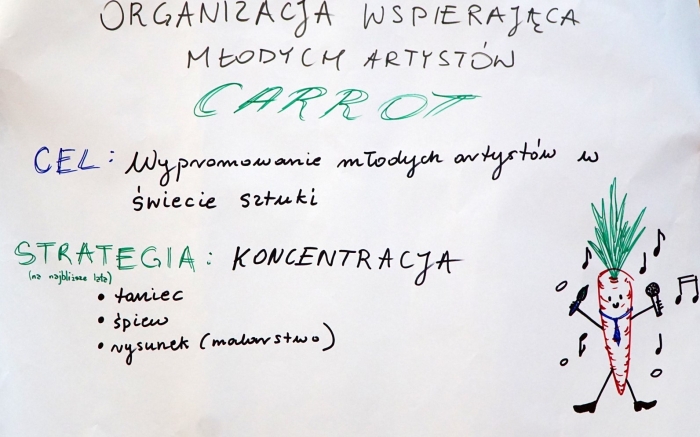 ORGANIZACJA WSPIERAJĄCA
MŁODYCH ARTYSTÓW
CARROT
CEL: Wypromowanie młodych artystów w
świecie sztuki
STRATEGIA: KONCENTRACJA
(na najbliższe lata)
• taniec
• śpiew
• rysunek (malarstwo)